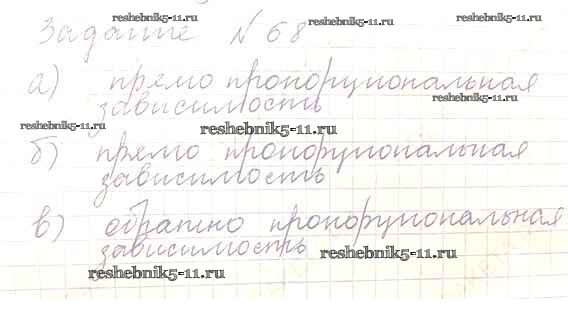 reshebnik5-11.ru
reshebnik5-11.ru
reshebnik5-11.ru
Задание № 68
а) прямо пропорциональная
reshebnik5-11.ru
зависимость
reshebnik5-11.ru
reshebnik5-11.ru
б) прямо пропорциональная
зависимость
в) обратно пропорциональная
зависимость
reshebnik5-11.ru
reshebnik5-11.ru